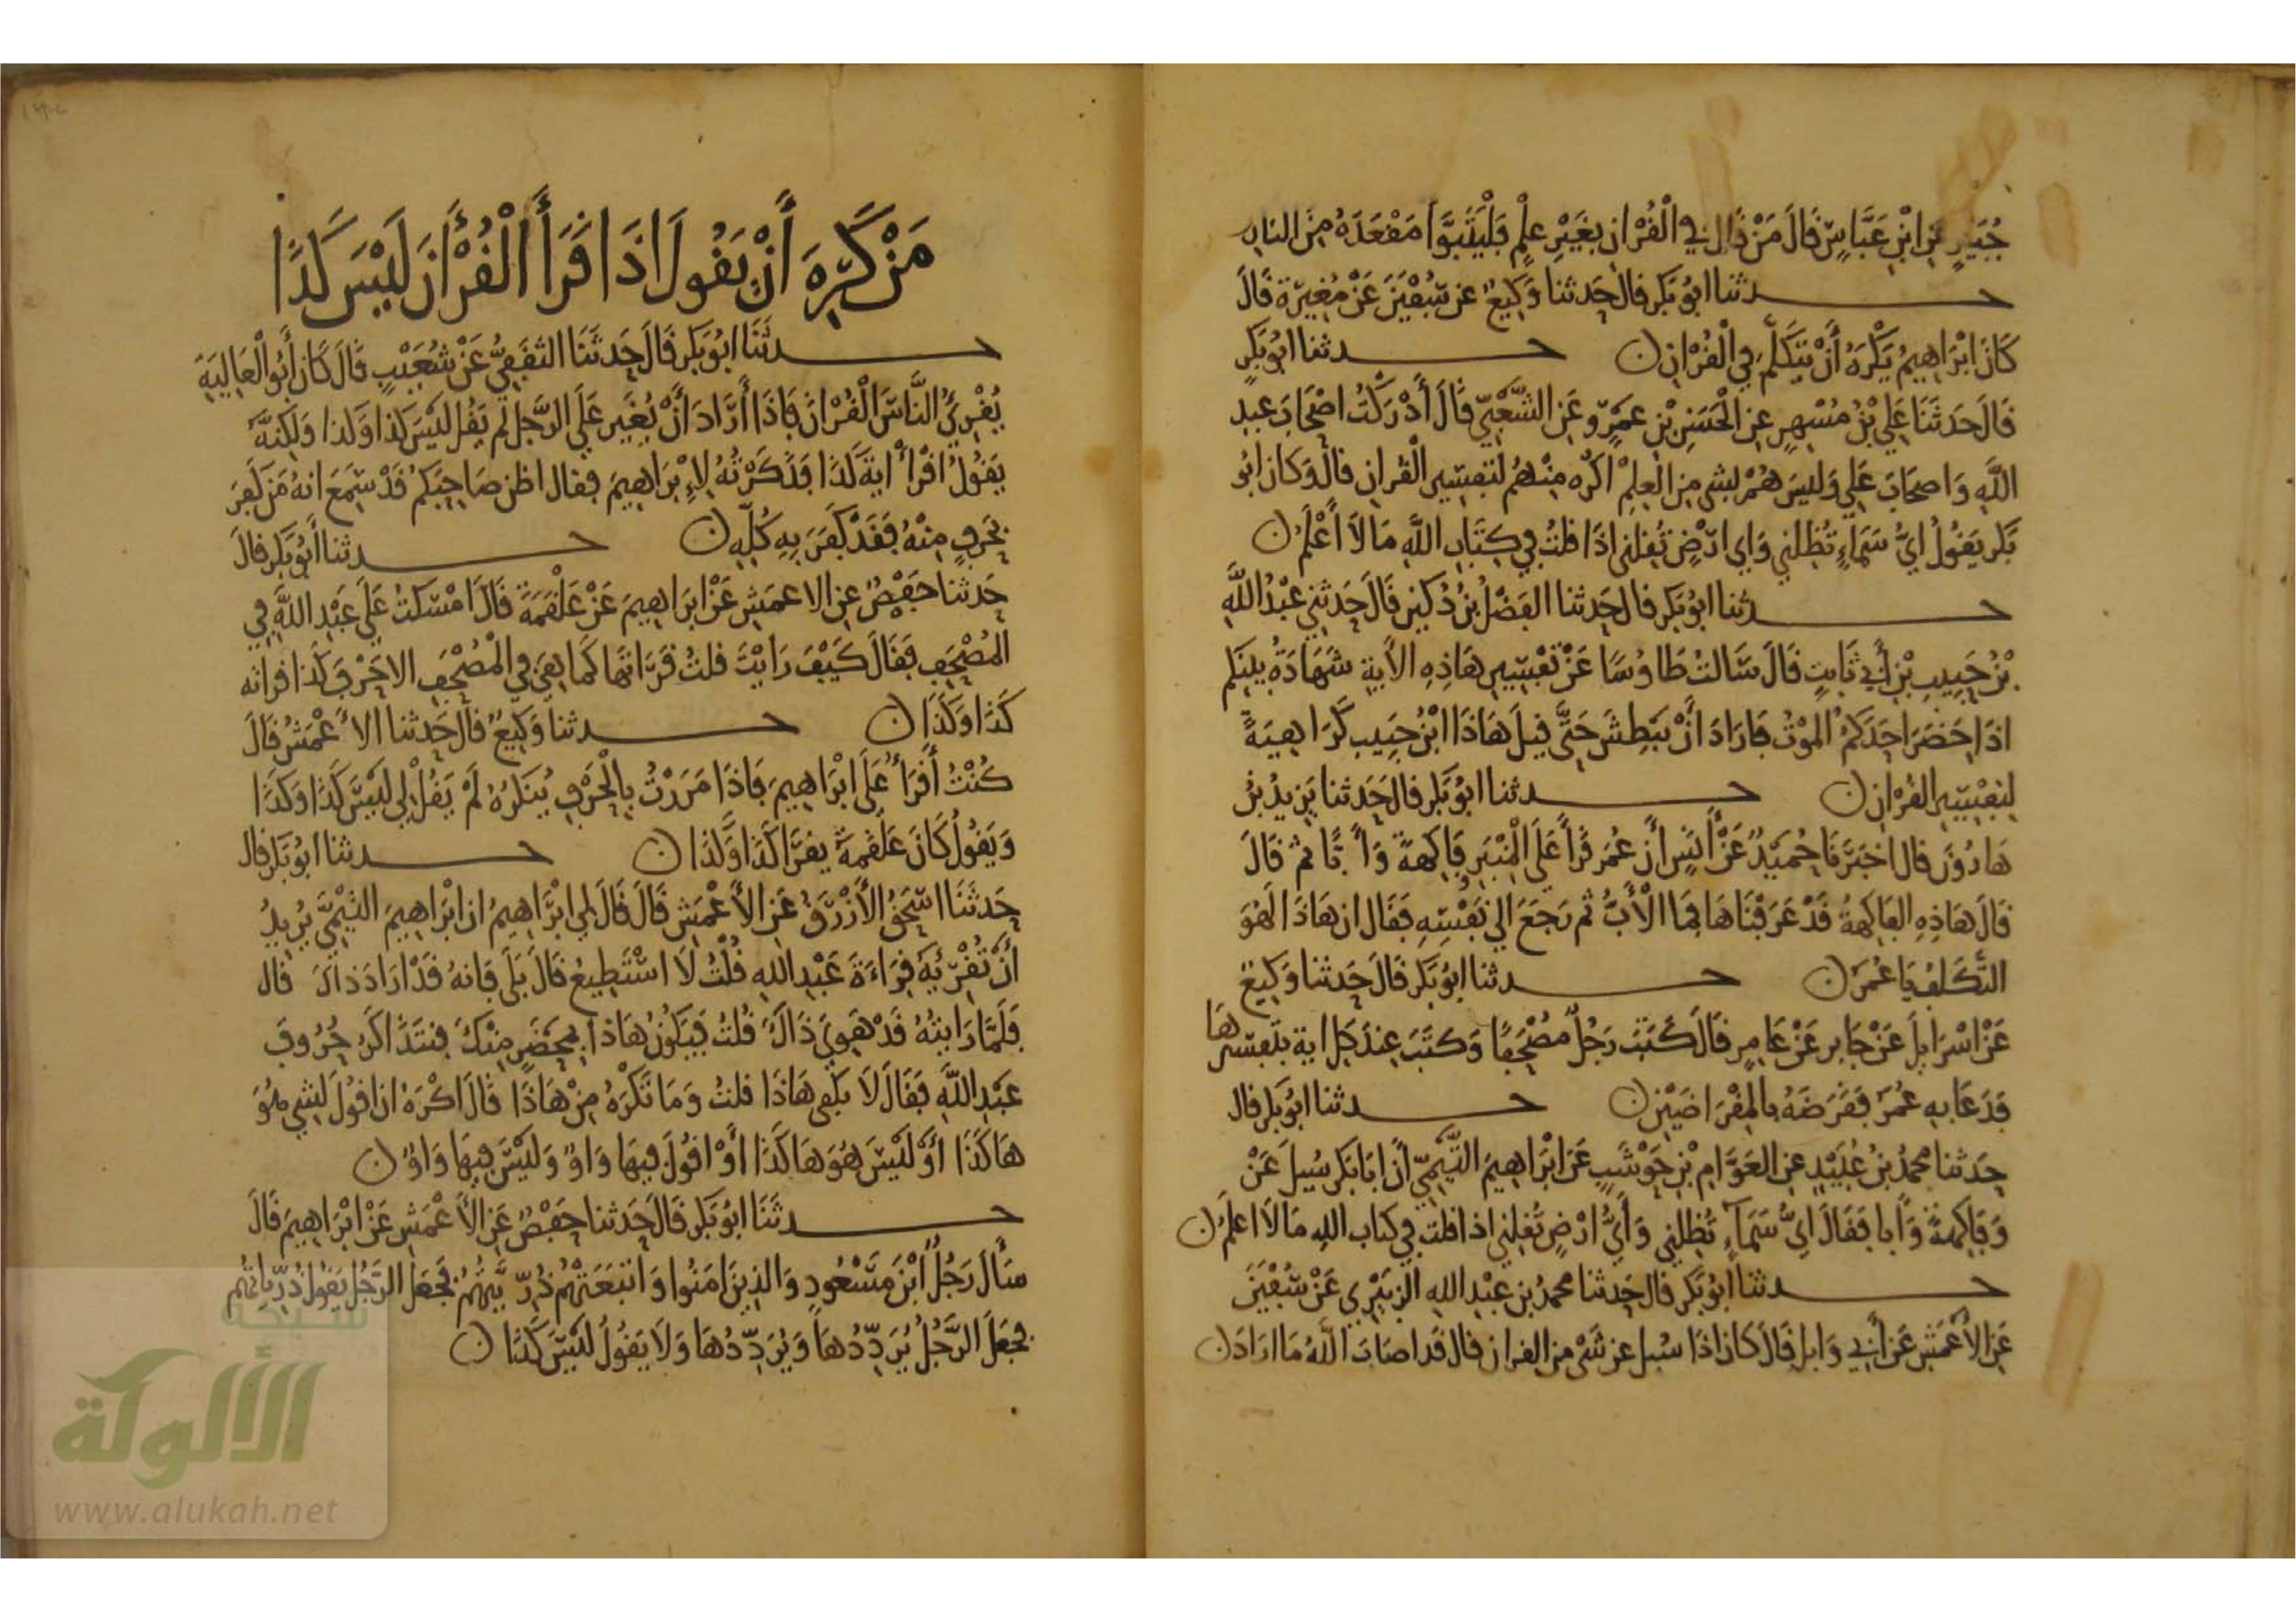 جُبَيرٍ عن ابْنِ عَبَّاسٍ قَالَ مَنْ قال في الْقُرْانِ بِغَيْرِ عِلْمٍ فَلْيَتَبَوَّأ مَقْعَدَهُ مِنَ النارِ
حدثنا ابُو بَكرٍ قال حَدثنا وَكِيعٌ عن سُفْيَنَ عَنْ مُغِيرَة قَالَ
كَانَ ابْرَاهِيمُ يَكْرَهُ أَنْ يَتَكَلَّمَ فِي الْقُرْانِ حدثنا ابُو بَكرٍ
قَالَ حَدثَنَا عَلِي بْنُ مُسْهِرٍ عن الْحَسَنِ بْنِ عمَرٍو عَنِ الشَّعْبِيِّ قَالَ أَدْرَكْتُ اصْحَابَ عبدِ
اللَّهِ وَاصحَابَ عَلِي وَليسَ هُمْ لِشي مِنَ الْعِلْمِ اكرَه مِنْهُم لتَفسِير القُرانِ قالَ وَكانَ ابُو
بَكرٍ يَقُولُ ايُّ سَمَاءٍ تُظِلني وَاي ارْضٍ تُقِلني اذَا قلتُ فِي كِتَابِ اللَّهِ مَا لاَ أَعْلَمُ
حدثنا ابُو بَكر قال حَدثنا الفَضْلُ بْنُ دُكَينٍ قَالَ حَدثني عَبْدُ اللَّهِ
بْنُ حَبِيبِ بْنِ أَبي ثَابتٍ قَالَ سَالتُ طَاوُسًا عَنْ تَفْسِيرِ هَاذِهِ الأَيةِ شَهَادَةُ بينكم
اذَا حَضَرَ احَدَكمُ الموْتُ فَارَادَ أَنْ يَبْطِشَ حَتَّى قِيلَ هَاذَا ابْنُ حَبِيب كَرَاهِيَةً
لِتفْسِيرِ القُرْانِ حدثنا ابُو بَكرٍ قال حَدَثنا يَزيدُ بْنُ
هَارُونَ قال اخبَرَنَا حُمَيْدٌ عَنْ أَنَسٍ أَنَّ عُمَرَ قَرَأَ عَلَى الْمِنْبَرِ فَاكِهةً وَأَبًّا ثم قَالَ
قَالَ هَاذِهِ الفَاكِهَةُ قَدْ عَرَفْنَاهَا فمَا الْأَبُّ ثم رَجَعَ الى نَفْسِهِ فَقَال ان هَاذَا لَهُوَ
التَّكَلُّفُ يَا عُمَرُ حدثنا ابُو بَكر قَالَ حَدثنا وَكِيعٌ
عَنْ اسْرَايلَ عَنْ جَابرٍ عَنْ عَامِرٍ قَالَ كَتَبَ رَجُلٌ مُصْحَفًا وَكَتَبَ عِندَ كل اية تفسيرهَا
فَدَعَا بهِ عُمَرُ فَقَرَضَهُ بالمِقْرَاضَيْنِ حدثنا ابُو بَكر قال
حَدثنا محمدُ بْنُ عُبَيْدٍ عن العَوَّام بْنِ حَوْشَبٍ عَنْ ابْرَاهِيمَ التَّيْمِيِّ أَنَّ ابَا بَكر سُيلَ عَنْ
وَفَاكِهةً وَأَبا فَقَالَ ايُّ سَمَآءٍ تُظِلني وَأَيُّ ارْضٍ تُقِلني اذا قلت في كتاب اللهِ مَا لاَ اعلَمُ
حدثنا ابُو بَكر قال حَدثنا محمدُ بن عَبْدِ اللهِ الزبَيْرِي عَنْ سُفْيَنَ
عَنِ الأَعْمَشِ عَنْ أَبي وَايلٍ قَالَ كانَ اذَا سُيل عن شَىْ من القرانِ قال قَد اصَابَ اللَّهُ مَا ارَادَ
مَنْ كَرِهَ أَنْ يَقُولَ اذَا قَرَأَ الْقُرْأَنَ لَيْسَ كَذَا
حدثَنَا ابُو بَكرٍ قَالَ حَدثَنَا الثقَفِيُّ عَنْ شُعَيْبٍ قَالَ كَانَ أَبُو الْعَالِيَةِ
يُقْرِئُ النَّاسَ الْقُرْانَ فَاذَا أَرَادَ أَنْ يُغَيِر عَلَى الرَّجُلِ لَم يَقُل لَيْسَ كَذا وَكذا وَلكِنَّهُ
يَقُولُ اقْرأْ ايَةَ كَذَا فَذَكَرْتُهُ لِإِبْرَاهِيمَ فقال اظن صَاحِبَكمْ قَدْ سَمِعَ انهُ مَن كَفرَ
بحَرفٍ مِنْهُ فَقَدْ كَفَرَ بهِ كُلِّهِ حدثنا أَبُو بَكر قَالَ
حَدثنا حَفْصٌ عن الاعمَشِ عَنْ ابرَاهِيمَ عَنْ عَلْقَمَةَ قَالَ امْسَكتُ عَلَى عَبْدِ اللَّهِ فِي
المُصْحَفِ فَقَالَ كَيْفَ رَايْتَ قلتُ قَرَاتَهَا كَما هِيَ في المُصْحَفِ الا حَرْفَ كَذا قراته
كَذَا وَكَذَا حدثنا وَكِيعٌ قَالَ حَدثنا الأَعْمَشُ قَالَ
كُنْتُ أَقْرَأُ عَلَى ابْرَاهِيمَ فَاذَا مَرَرْتُ بِالْحَرْفِ يُنكرُهُ لَمْ يَقُلْ لي لَيْسَ كَذَا وَكَذَا
وَيَقُولُ كَانَ عَلْقَمَةُ يقرَا كَذَا وَكذَا حدثنا ابُو بَكر قال
حَدثَنَا اسْحَقُ الأَزْرَقُ عَنِ الأَعْمَشِ قَالَ قَالَ لي ابْرَاهِيمُ ان ابْرَاهِيمَ التيْمِيَّ يُرِيدُ
أَنْ تُقْرِئَهُ قِرَاءَةَ عَبْدِ اللهِ قُلْتُ لاَ اسْتَطِيعُ قَالَ بَلَى فَانهُ قَدْ ارَادَ ذاكَ قال
فَلَمَّا رَايتُهُ قَدْ هَوِيَ ذَاكَ قُلتُ فَيَكُونُ هَاذا بمحْضَرٍ مِنْكَ فنتَذَاكرُ حُرُوفَ
عَبْدِ اللَّهِ فَقَالَ لاَ يكفى هَاذَا قلتُ وَمَا تَكْرَهُ مِنْ هَاذَا قَالَ اكْرَهُ ان اقُولَ لشي هُوَ
هَاكَذَا أَوْ لَيْسَ هُوَ هَاكَذَا أَوْ اقُولَ فِيهَا وَاوٌ وَلَيْسَ فِيهَا وَاوٌ
حدثَنَا ابُو بَكر قَالَ حَدثنا حَفْصٌ عَنِ الأَعْمَشِ عَنْ ابْرَاهِيمَ قَالَ
سَأَلَ رَجُلٌ ابْنَ مَسْعُودٍ وَالذِينَ امَنُوا وَاتبَعَتْهُمْ ذُرِّيَّتُهُمْ فَجعَلَ الرَّجُل يَقُول ذُرِّياتُهُم
فجَعَلَ الرَّجُلُ يُرَدِّدُهَا وَيُرَدِّدُهَا وَلاَ يَقُولُ لَيْسَ كَذَا
شبكة
الألوكة
www.alukah.net